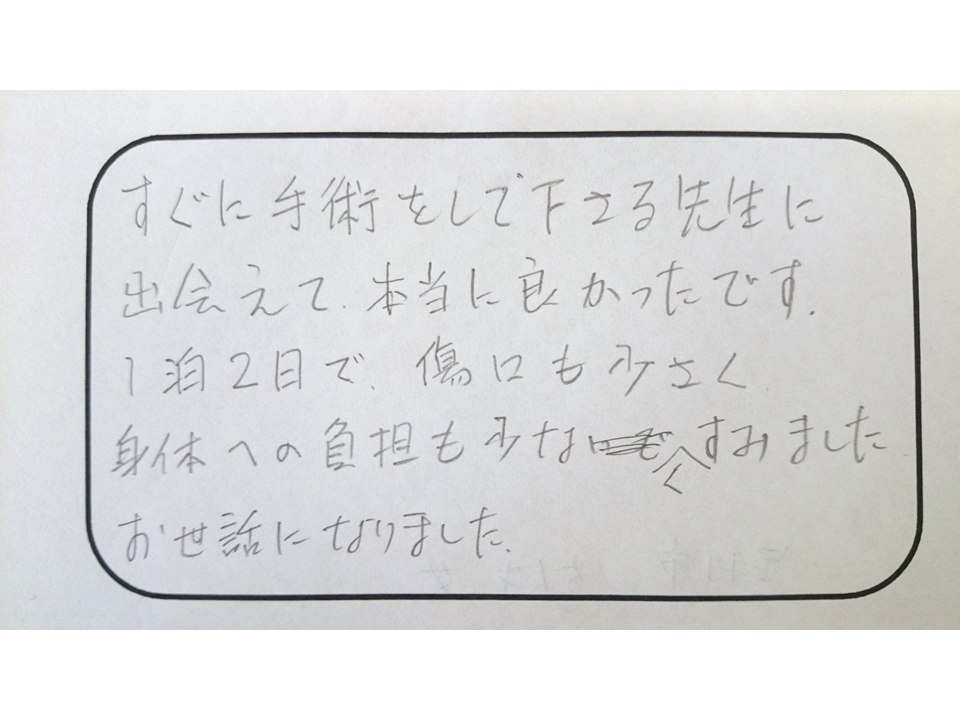 すぐに手術をして下さる先生に
出会えて、本当に良かったです。
1泊2日で、傷口も少さく
身体への負担も少なくすみました
お世話になりました。